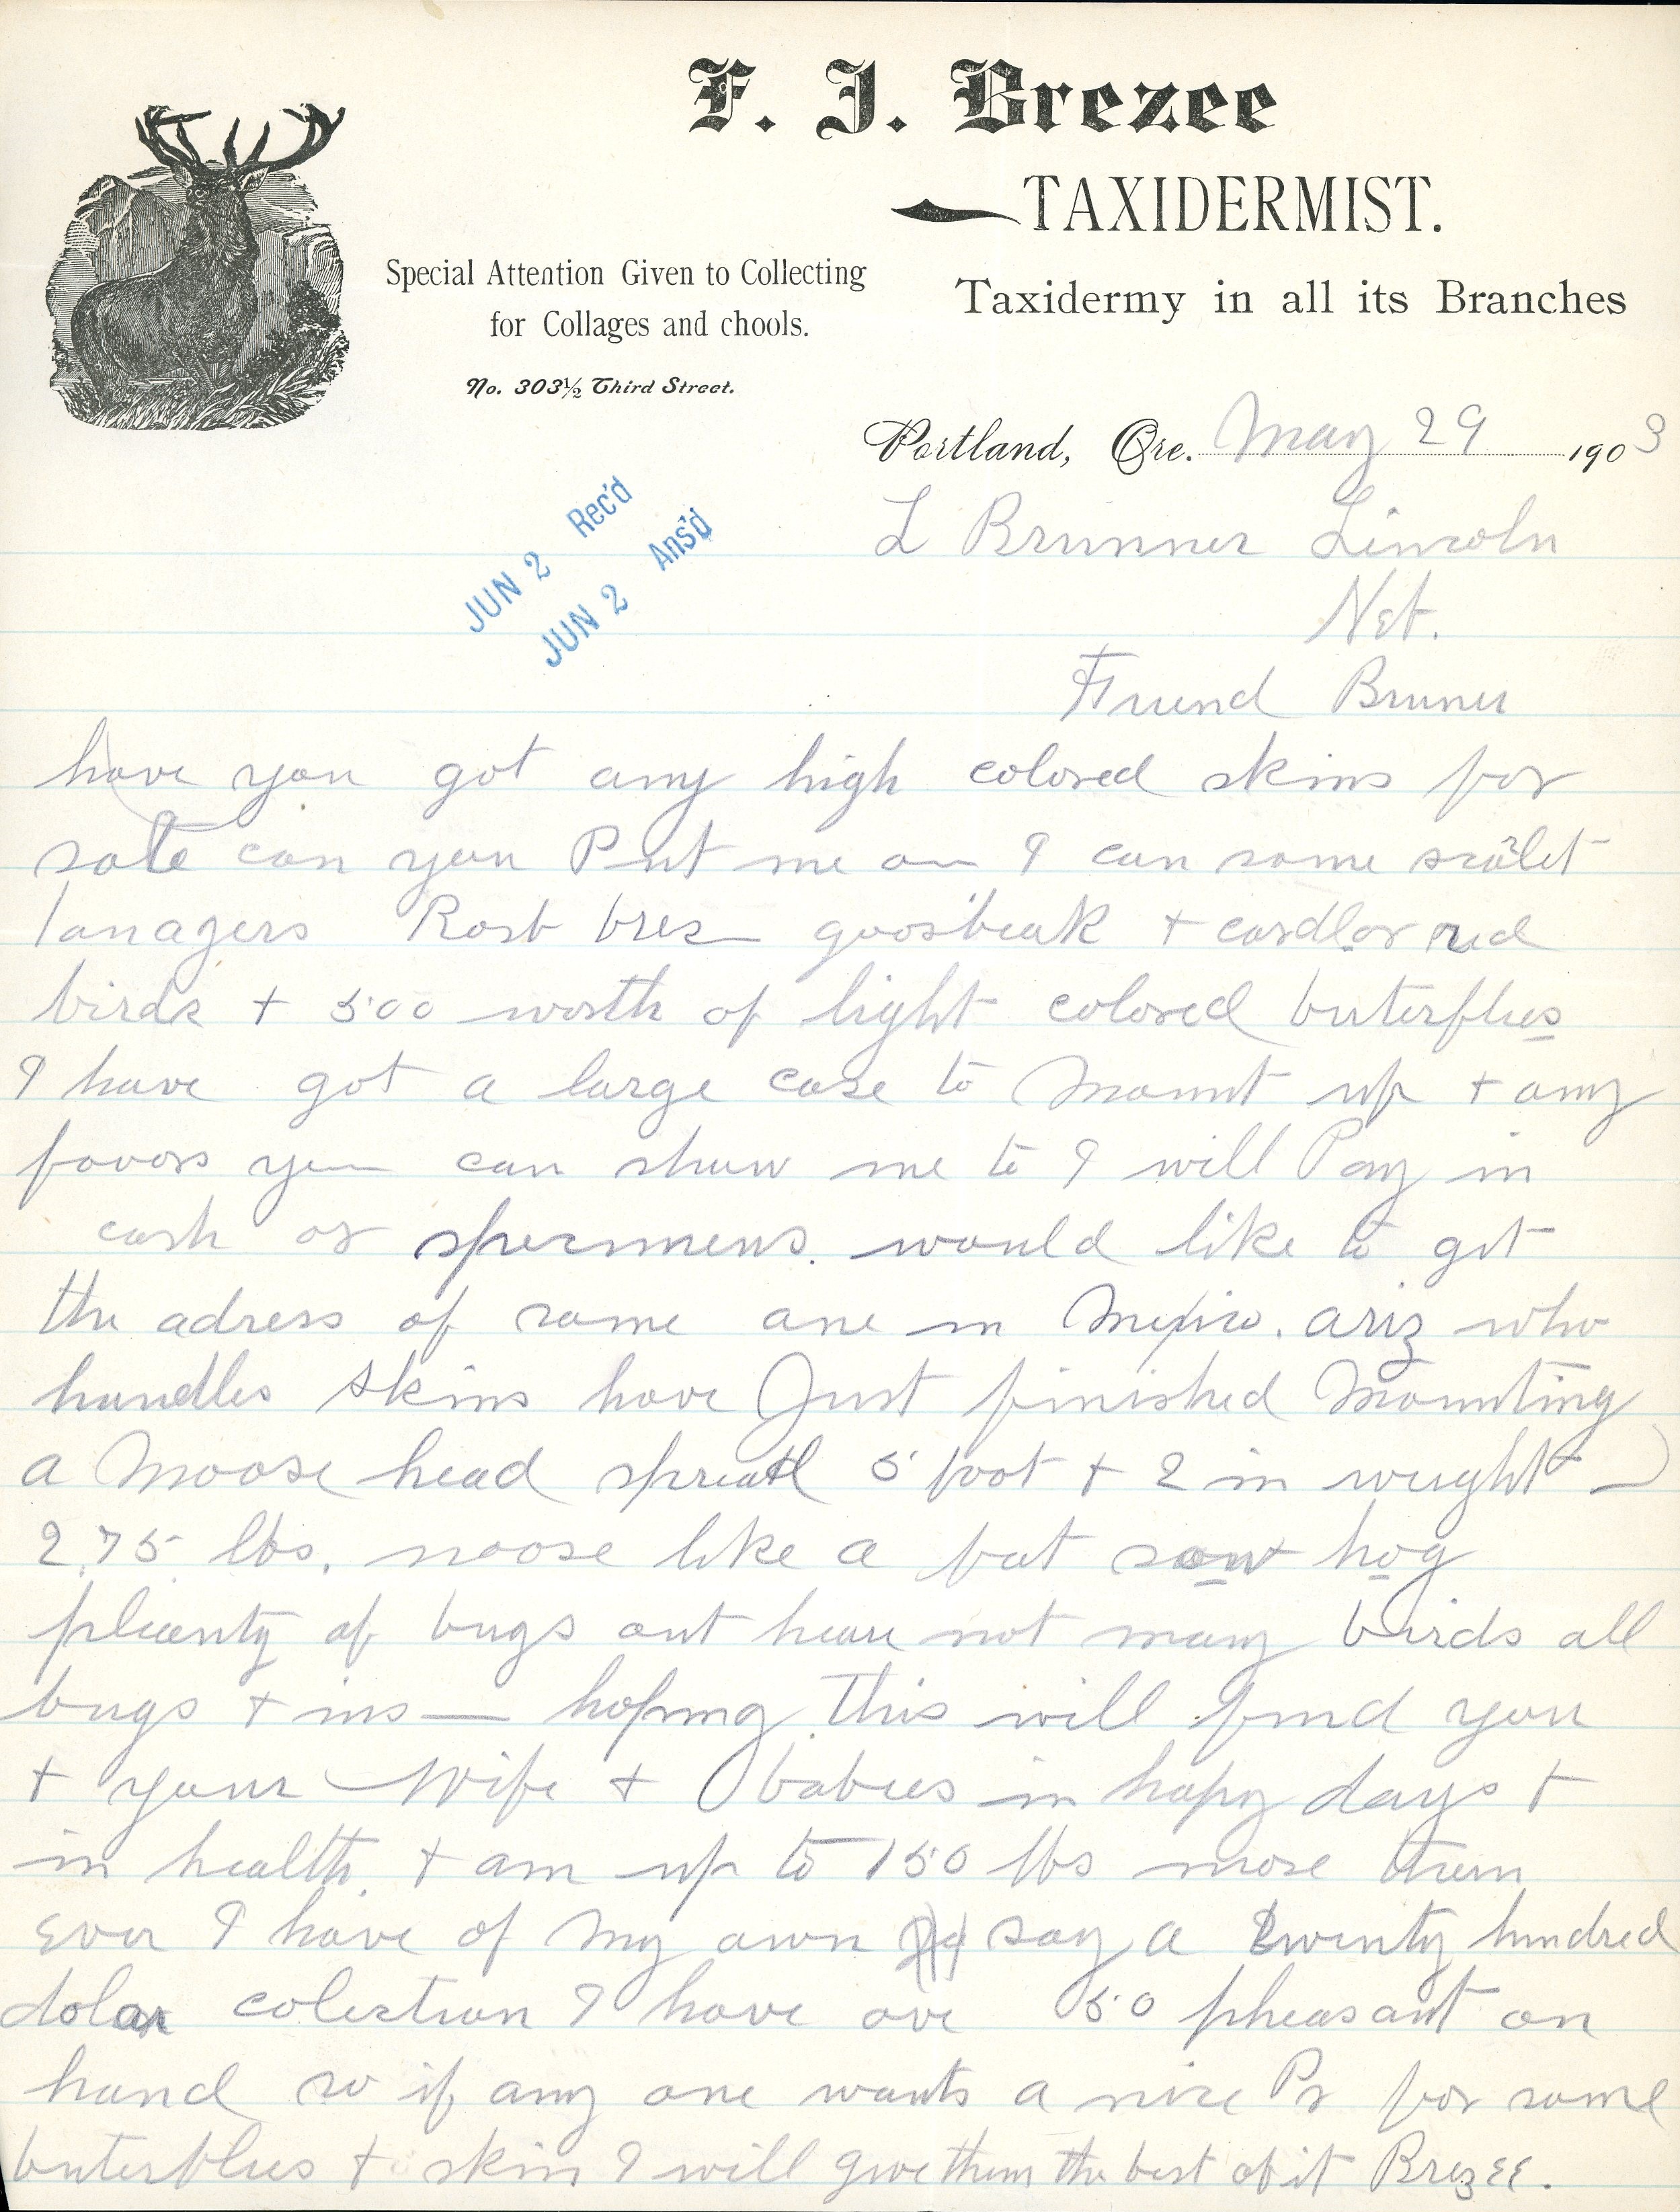 F. J. Brezee
TAXIDERMIST.
Special Attention Given to Collecting
for Collages and chools.
Taxidermy in all its Branches
No. 303½ Third Street.
Portland, Ore. May 29 1903
JUN 2 Rec'd
JUN 2 Ans'd
L Brunner Lincoln
Neb.
Friend Bruner
have you got any high colored skins for
sale can you Put me on I can some
tanagers Rosb bres goosbeak + cardlor red
birds + 500 worth of light colored buterflies
I have got a large case to Mount up + any
favors you can show me to I will Pay in
cash or specimens. would like to get
the adress of some one in Mexico. ariz who
handles skins have Just finished Mounting
a Moose head spread 5 foot + 2 in weight
275 lbs. noose like a fat sow hog
pleanty of bugs out hear not many birds all
bugs + ins — hoping This will find you
+ your Wife + babies in hapy days +
in health. + am up to 150 lbs more then
Ever I have of My own say a twenty hundred
dolar colection I have ove 50 pheasant on
hand so if any one wants a nice Pr for some
buterflies + skin I will give them the best of it Brezee.